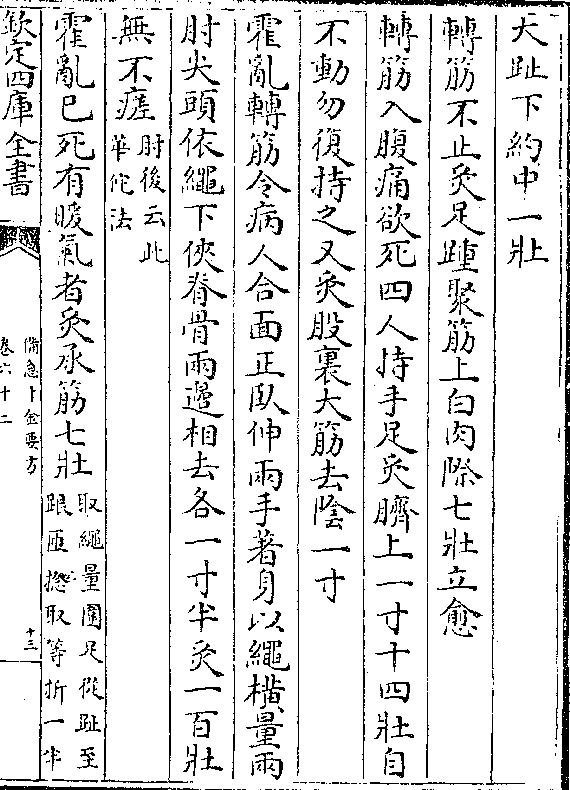 大趾下約中一壯
轉筋不止灸足踵聚筋上白肉際七壯立愈
轉筋入腹痛欲死四人持手足灸臍上一寸十四壯自
不動勿復持之又灸股裏大筋去陰一寸
霍亂轉筋令病人合面正臥伸兩手著身以繩橫量兩
肘尖頭依繩下俠脊骨兩邊相去各一寸半灸一百壯
無不瘥
肘後云此
華佗法
霍亂已死有暖氣者灸承筋七壯
取繩量圍足從趾至
跟匝撚取等折一半
欽定四庫全書
備急千金要方
卷六十二
十三